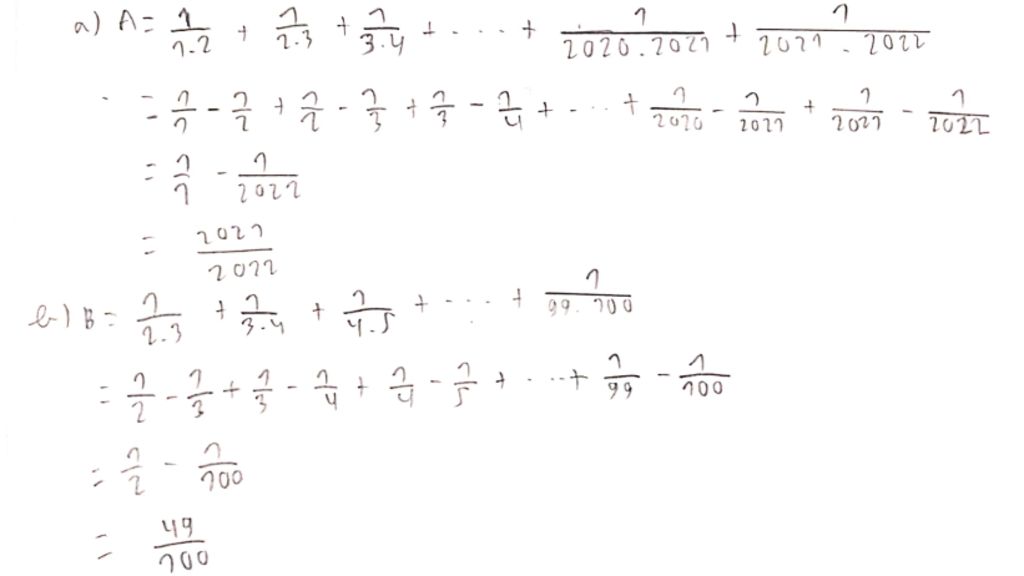 a) A = 1/1.2 + 1/2.3 + 1/3.4 + .... + 1/2020.2021 + 1/2021.2022
= 1/1 - 1/2 + 1/2 - 1/3 + 1/3 - 1/4 + .... + 1/2020 - 1/2021 + 1/2021 - 1/2022
= 1/1 - 1/2022
= 2021/2022
b) B = 1/2.3 + 1/3.4 + 1/4.5 + .... + 1/99.100
= 1/2 - 1/3 + 1/3 - 1/4 + 1/4 - 1/5 + ....+ 1/99 - 1/100
= 1/2 - 1/100
= 49/100